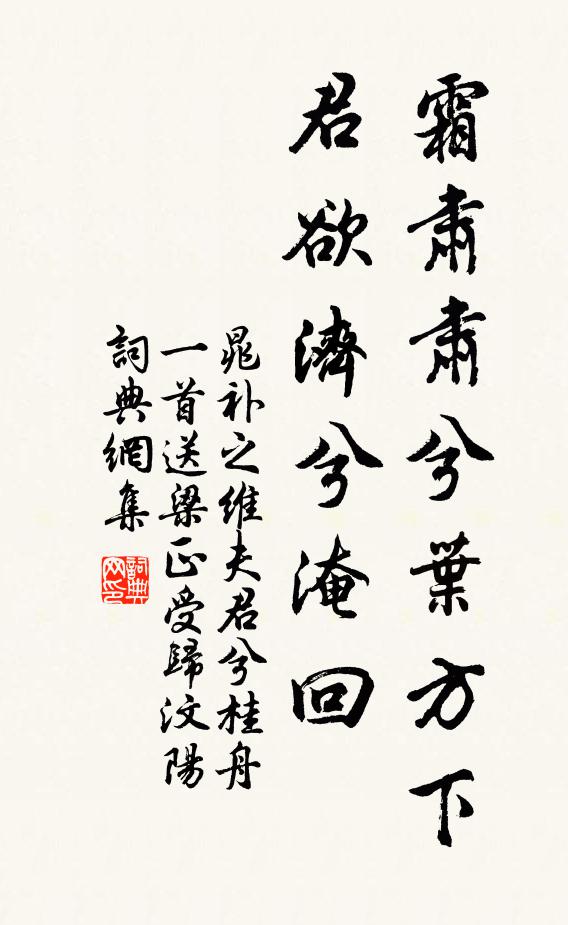 霜肅肅兮葉方下
君欲濟兮淹回
晁补之維夫君兮桂舟
一首送梁正受歸汶陽
詞典網集
詞典网印